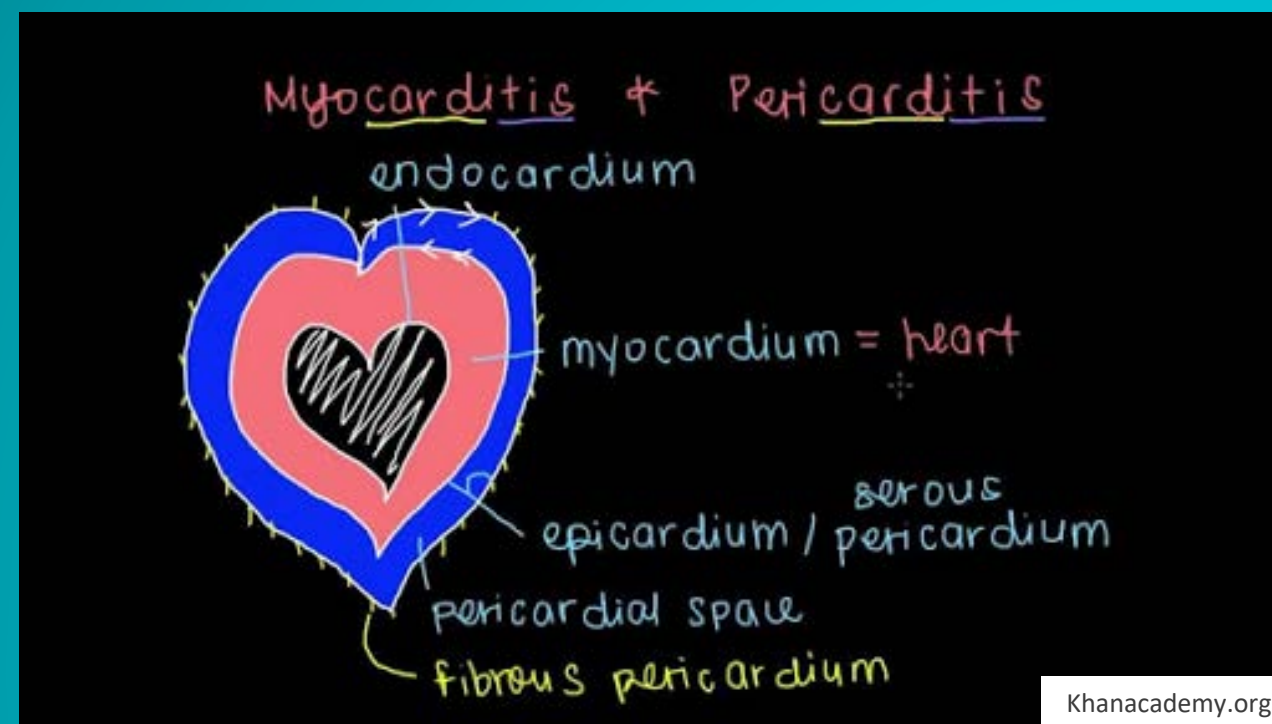 Myocarditis & Pericarditis
endocardium
myocardium = heart
serous
epicardium / pericardium
pericardial space
fibrous pericardium
Khanacademy.org